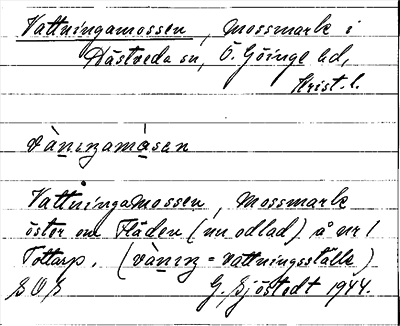 Vattningamossen, mossmark i
Hästveda sn, Ö. Göinge hd,
Krist. l.
vànıŋamåsan
Vattningamossen, mossmark
öster om Fläden (nu odlad) å nr 1
Tottarp. (vànıŋ = vattningsställe)
G. Sjöstedt 1944.